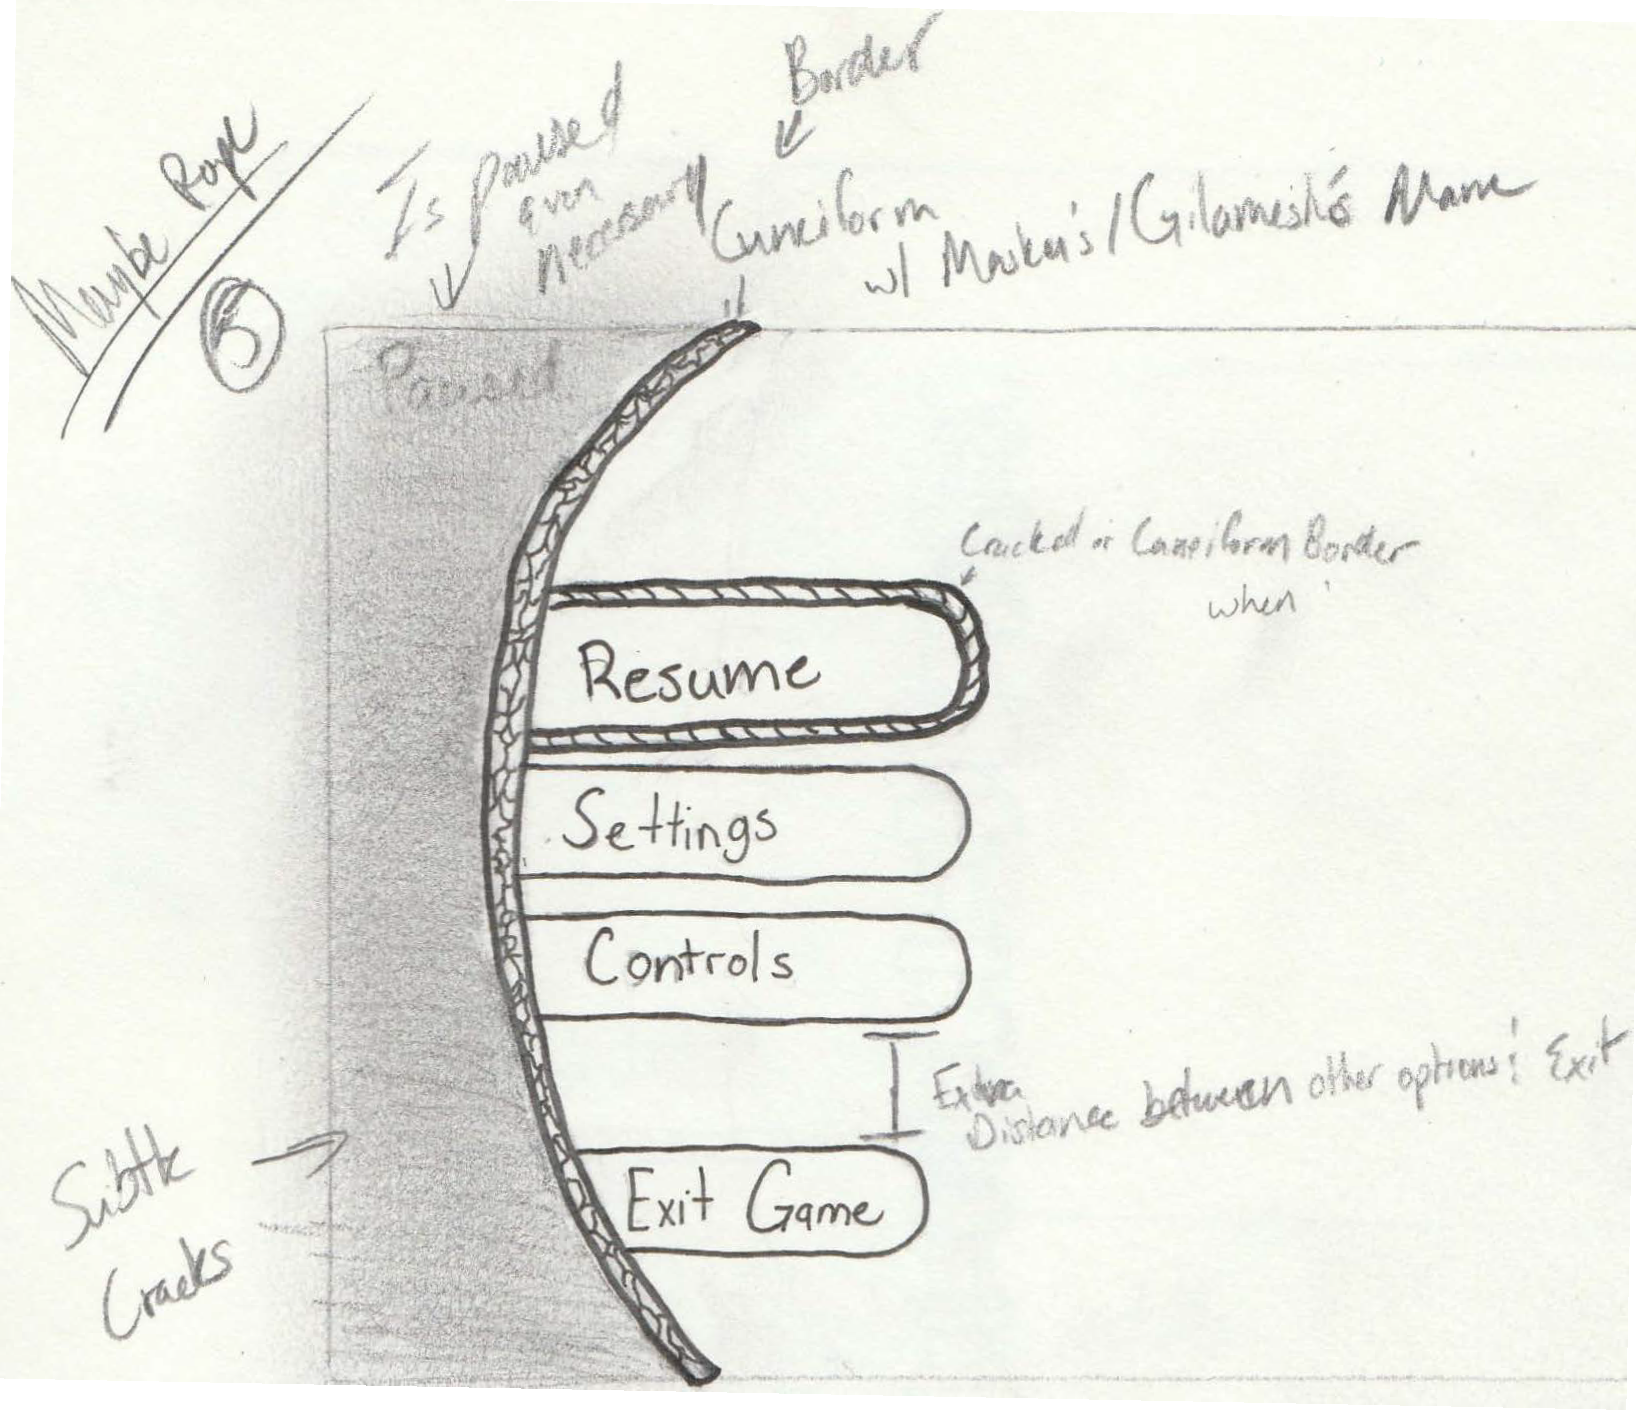 Border
Maybe Rope
5
Is paused
even
necessary
Cuneiform
w/ Maskur's/Gilamesh's Name
Paused
Cracked or Cuneiform Border
when
Resume
Settings
Controls
Extra
Distance between other options & Exit
Subtle
Cracks
Exit Game